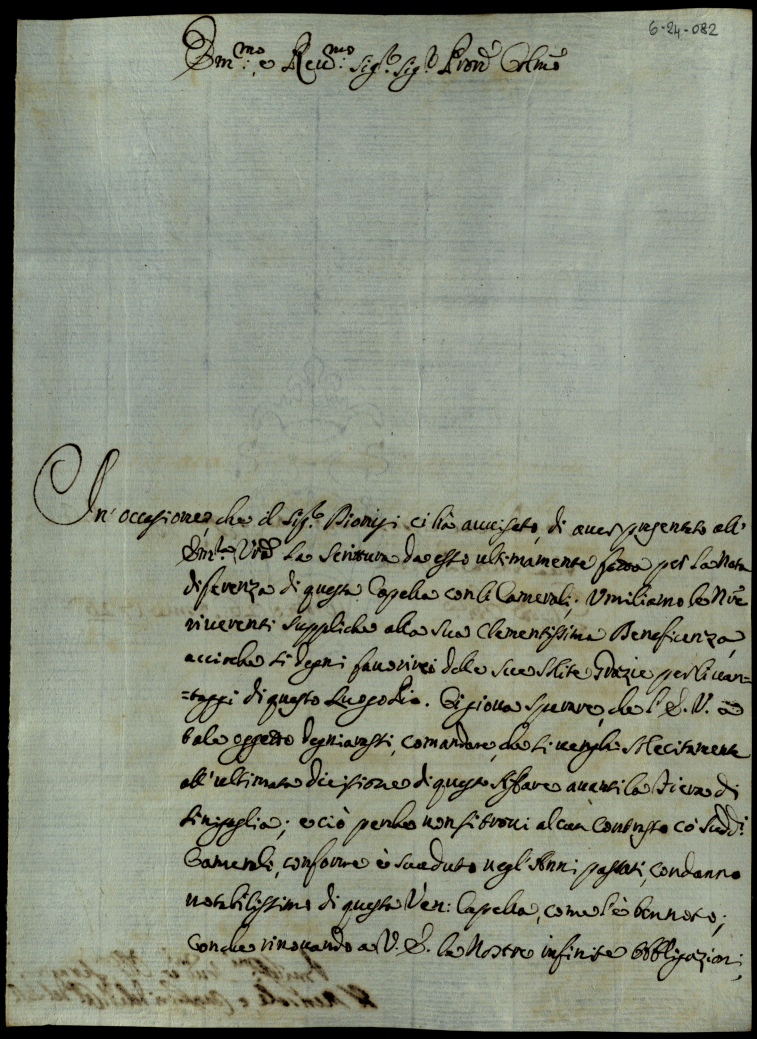 6-24-082
Em:mo e Reu:mo Sig.r Sig.r Pron.e Colmo
In occasione, che il Sig.r Dionisi ci hà auuisato, di auer presentato all'
Em:za V.ra La Scrittura da esso ultimamente fatta per La nota
diferenza di questa Capella con li Camerali; Vmiliamo le Nr̃e
riuerenti suppliche alla sua Clementissima Beneficenza,
accioche si degni fauorirci delle sue solite Grazie per li uan=
=taggi di questo Luogo Pio. Ci gioua sperare, che l'E. V. a
tale oggetto degnarassi, comandare, che si uenghi sollecitamente
all'ultimata dicisione di questo Affare auanti la Fiera di
Sinigaglia; e ciò perche non si troui alcun Contrasto co' sudd.i
Camerali, conforme è accaduto negl'Anni passati, con danno
notabilissimo di questa Ven: Capella, come l'è ben noto;
Con che rinouando a V. E. le Nostre infinite obbligazioni,